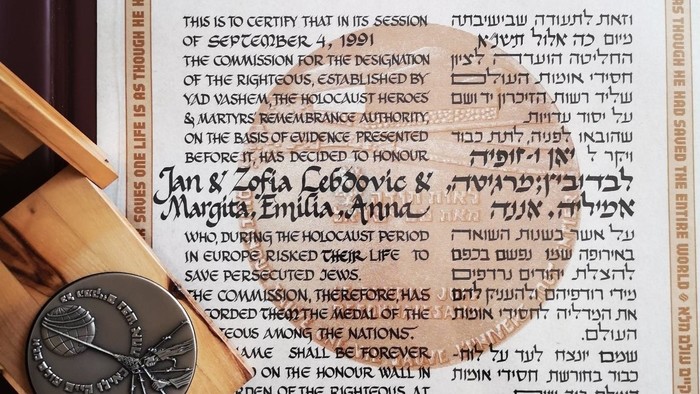 THIS IS TO CERTIFY THAT IN ITS SESSION
OF SEPTEMBER 4, 1991
THE COMMISSION FOR THE DESIGNATION
OF THE RIGHTEOUS, ESTABLISHED BY
YAD VASHEM, THE HOLOCAUST HEROES
& MARTYRS' REMEMBRANCE AUTHORITY,
ON THE BASIS OF EVIDENCE PRESENTED
BEFORE IT, HAS DECIDED TO HONOUR
Jan & Zofia Lebdovic &
Margita, Emilia, Anna
WHO, DURING THE HOLOCAUST PERIOD
IN EUROPE RISKED THEIR LIFE TO
SAVE PERSECUTED JEWS.
THE COMMISSION, THEREFORE, HAS
THEM THE MEDAL OF THE
AMONG THE NATIONS.
SHALL BE FOREVER
ON THE HONOUR WALL IN
OF THE RIGHTEOUS, AT
וזאת לתעודה, שבישיבתה
מיום כה אלול תשנ"א
החליטה הועדה לציון
חסידי אומות העולם
שליד רשות הזיכרון יד ושם
על יסוד עדויות
שהובאו לפניה, לתת כבוד
ויקר ל יאן ו-זופיה
לבדוביץ; מרגיטה,
אמיליה, אננה
על אשר בשנות השואה
באירופה שמו נפשם בכפם
להצלת יהודים נרדפים
מידי רודפיהם ולהעניק להם
את המדליה לחסידי אומות
העולם.
שמם יונצח לעד על לוח-
כבוד בחורשת חסידי אומות
SAVES ONE LIFE IS AS THOUGH HE
AS THOUGH HE HAD SAVED THE ENTIRE WORLD